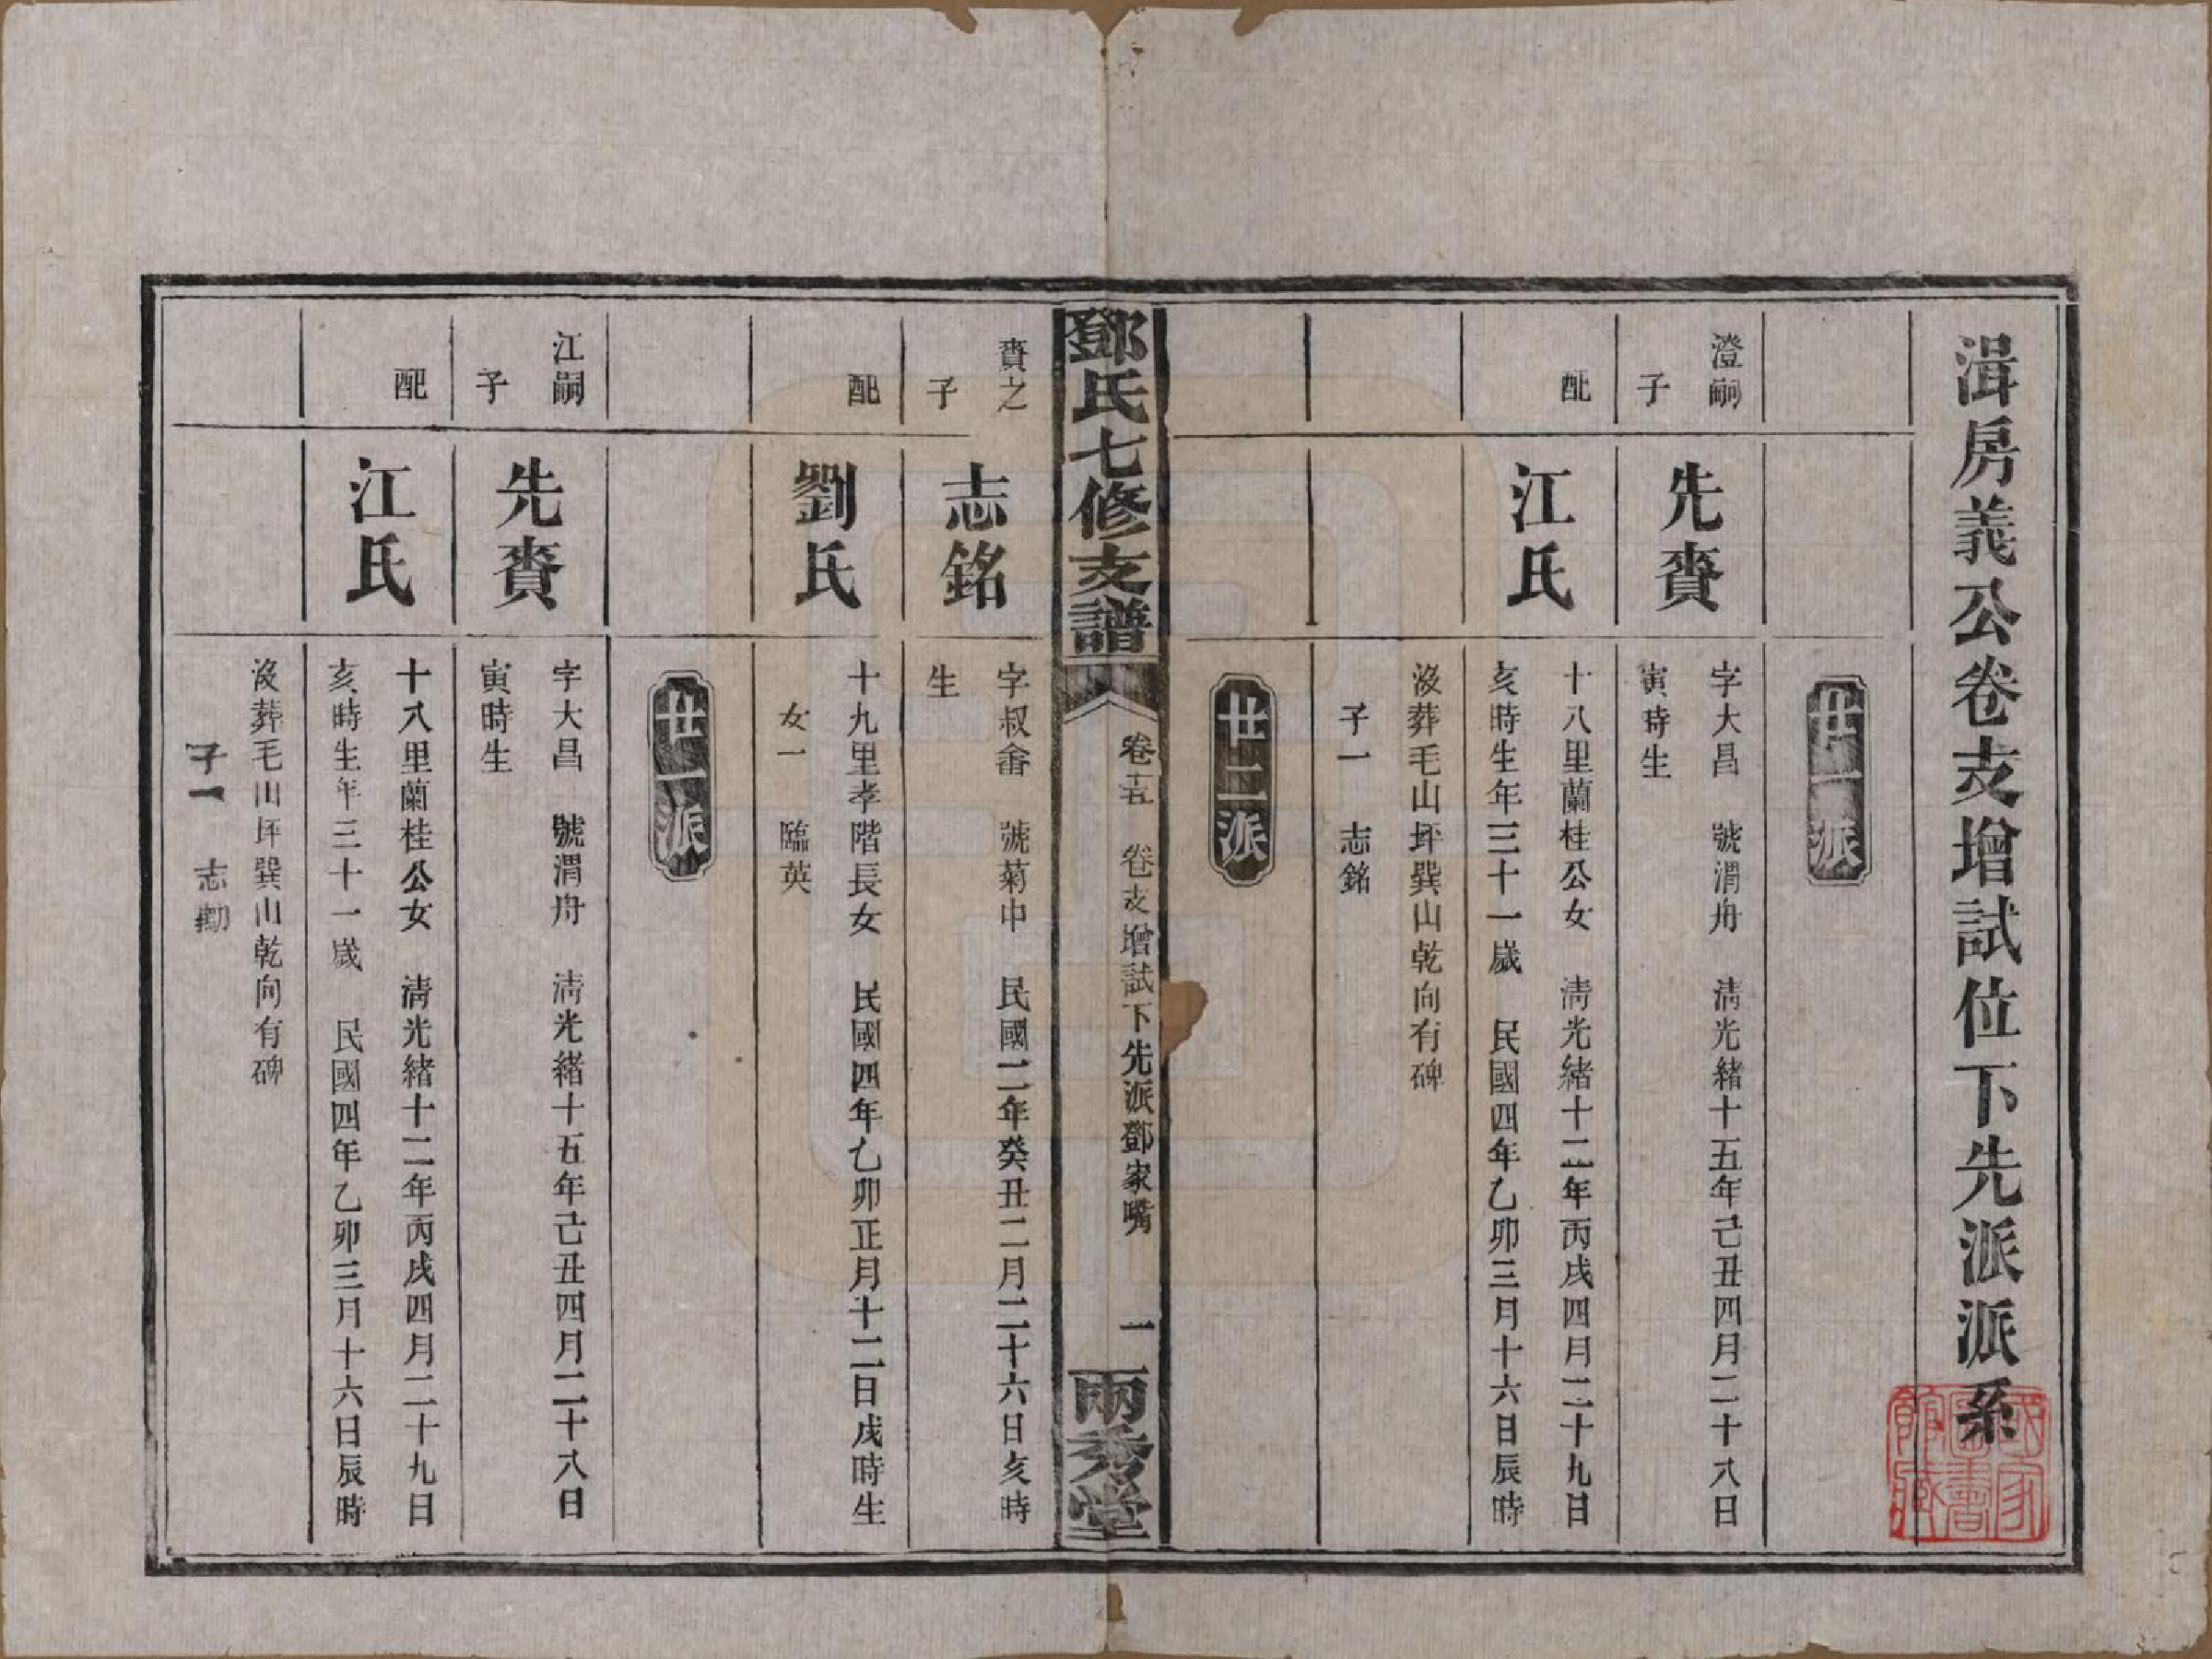 湒房義公卷支增試位下先派派系
廿一派
澄嗣子
先賚
字大昌　號渭舟　清光緒十五年己丑四月二十八日
寅時生
配
江氏
十八里蘭桂公女　清光緒十二年丙戌四月二十九日
亥時生年三十一歲　民國四年乙卯三月十六日辰時
沒葬毛山坪巽山乾向有碑
子一　志銘
廿二派
鄧氏七修支譜
卷十五　卷支增試下先派鄧家嘴　一
兩秀堂
賚之子
志銘
字叔畬　號菊中　民國二年癸丑二月二十六日亥時
生
配
劉氏
十九里孝階長女　民國四年乙卯正月十二日戌時生
女一　臨英
廿一派
江嗣子
先賚
字大昌　號渭舟　清光緒十五年己丑四月二十八日
寅時生
配
江氏
十八里蘭桂公女　清光緒十二年丙戌四月二十九日
亥時生年三十一歲　民國四年乙卯三月十六日辰時
沒葬毛山坪巽山乾向有碑
子一　志勷
國家圖書館藏